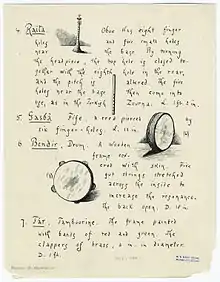 4. Raita Oboe has eight finger
holes and five small holes
near the base. By moving
the headpiece, the top hole is closed to-
gether with the eighth hole in the rear,
and the pitch is altered. The five
holes near the base then come into
use, as in the Turkish Zourna. L. 1 ft.
5. Gasbâ Fife, a reed pierced by
six finger-holes. L.
6. Bendir, Drum. A wooden (b)
frame cov-
ered with skin. Five
gut strings stretched
(a) across the inside to
increase the resonance.
the back open. D.
7. Târ, Tambourine. The frame painted
with bands of red and green. The
clappers of brass, in. in diameter.
D. 1 ft.